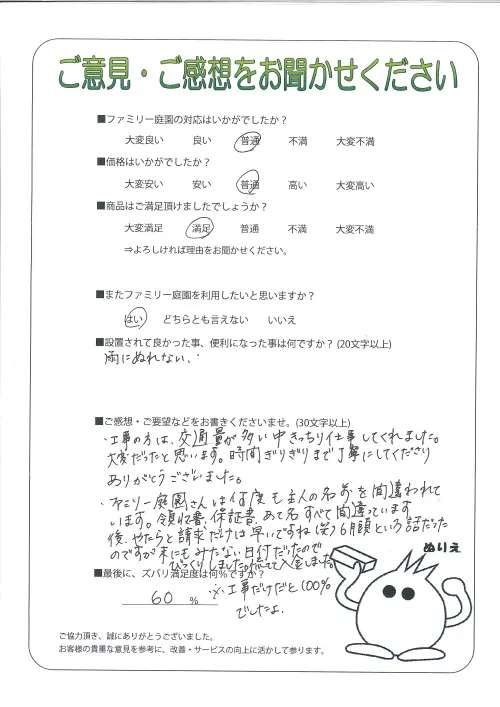 ご意見・ご感想をお聞かせください
■ファミリー庭園の対応はいかがでしたか？
大変良い 良い 普通 不満 大変不満
■価格はいかがでしたか？
大変安い 安い 普通 高い 大変高い
■商品はご満足頂けましたでしょうか？
大変満足 満足 普通 不満 大変不満
⇒よろしければ理由をお聞かせください。
■またファミリー庭園を利用したいと思いますか？
はい どちらとも言えない いいえ
■設置されて良かった事、便利になった事は何ですか？(20文字以上)
雨にぬれない、
■ご感想・ご要望などをお書きくださいませ。(30文字以上)
・工事の方は、交通量が多い中きっちり仕事してくれました。
大変だったと思います。時間ぎりぎりまで丁寧にしてくださり
ありがとうございました。
・ファミリー庭園さんは何度も主人の名前を間違われて
います。領収書、保証書、あて名すべて間違っています
後、やたらと請求だけは早いですね(笑)6月頃という話だった
のですが末にもみたない日付だったので
びっくりしました。あわてて入金しました
■最後に、ズバリ満足度は何％ですか？
60 %
※工事だけだと100%
でしたよ。
ぬりえ
ご協力頂き、誠にありがとうございました。
お客様の貴重な意見を参考に、改善・サービスの向上に活かして参ります。